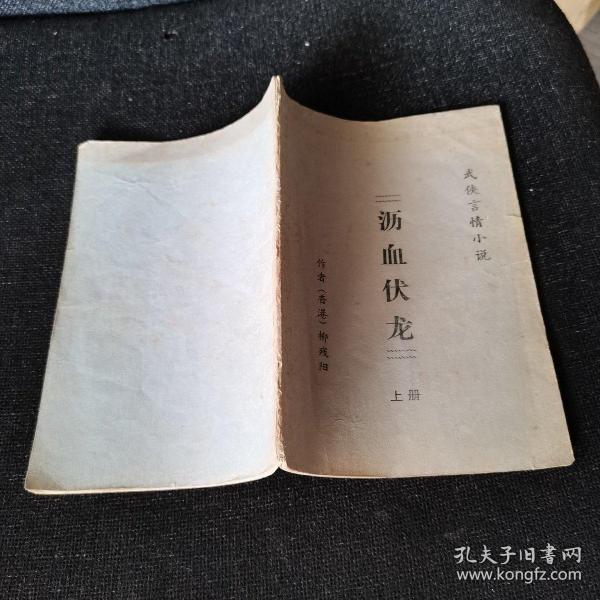 武侠言情小说
沥血伏龙
上册
作者（香港）柳残阳
孔夫子旧书网
www.kongfz.com